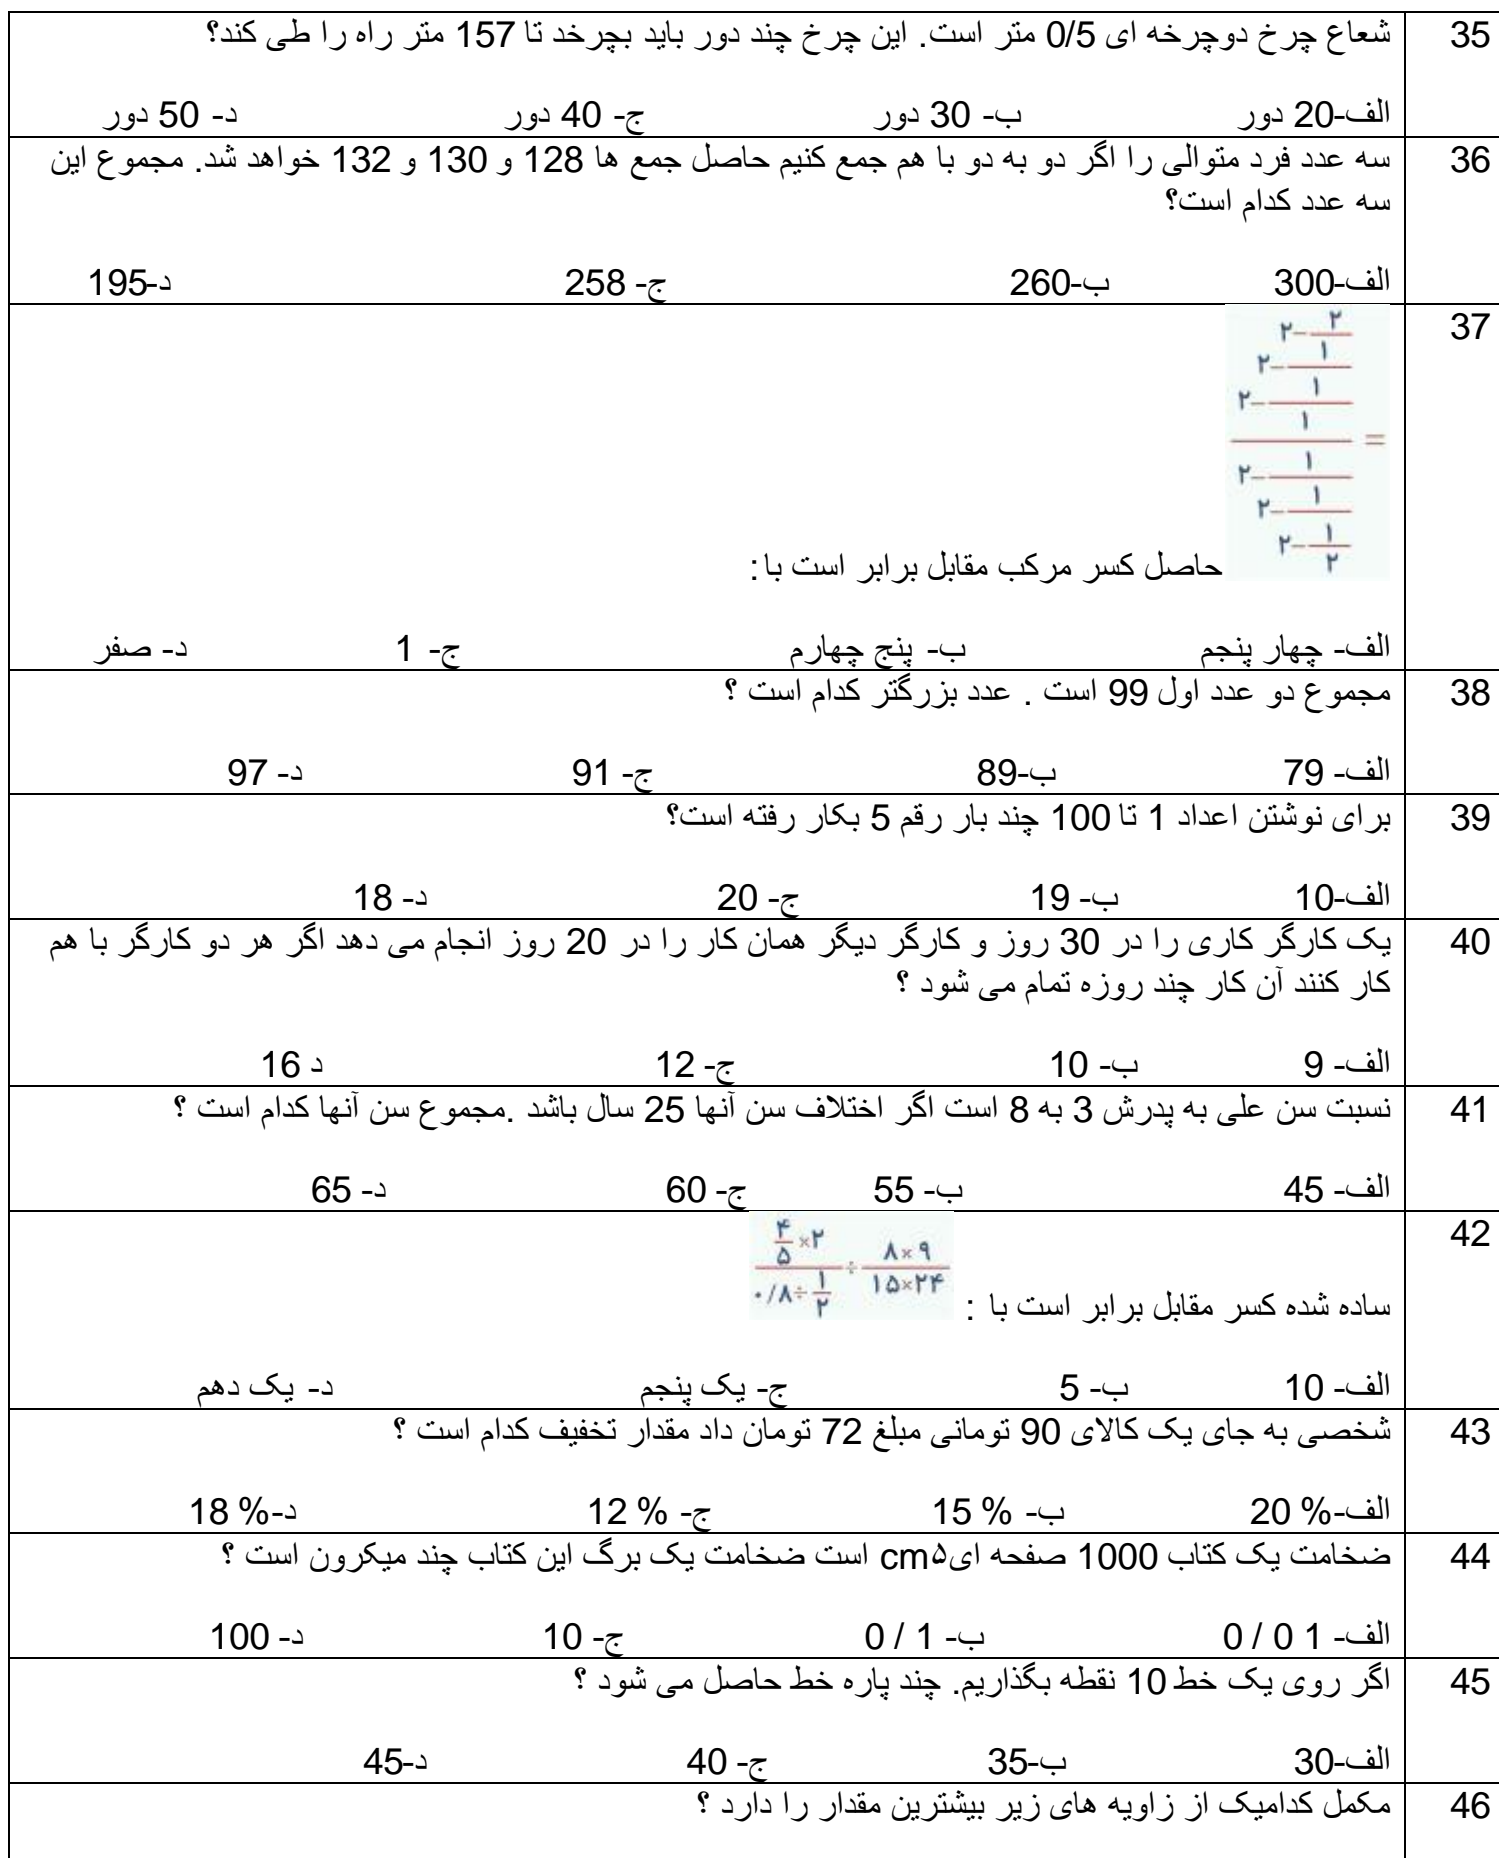 35 شعاع چرخ دوچرخه ای 0/5 متر است. این چرخ چند دور باید بچرخد تا 157 متر راه را طی کند؟
الف-20 دور ب- 30 دور ج- 40 دور د- 50 دور
36 سه عدد فرد متوالی را اگر دو به دو با هم جمع کنیم حاصل جمع ها 128 و 130 و 132 خواهد شد. مجموع این
سه عدد کدام است؟
الف-300 ب-260 ج- 258 د-195
37
۲-۲
۲-۱
۲-۱
۱ =
۲-۱
۲-۱
۲-۱
۲
حاصل کسر مرکب مقابل برابر است با:
الف- چهار پنجم ب- پنج چهارم ج- 1 د- صفر
38 مجموع دو عدد اول 99 است . عدد بزرگتر کدام است ؟
الف- 79 ب-89 ج- 91 د- 97
39 برای نوشتن اعداد 1 تا 100 چند بار رقم 5 بکار رفته است؟
الف-10 ب- 19 ج- 20 د- 18
40 یک کارگر کاری را در 30 روز و کارگر دیگر همان کار را در 20 روز انجام می دهد اگر هر دو کارگر با هم
کار کنند آن کار چند روزه تمام می شود ؟
الف- 9 ب- 10 ج- 12 د 16
41 نسبت سن علی به پدرش 3 به 8 است اگر اختلاف سن آنها 25 سال باشد .مجموع سن آنها کدام است ؟
الف- 45 ب- 55 ج- 60 د- 65
42
۴/۵ ×۲ ÷ ۸×۹
۰/۸÷۱/۲ ۱۵×۲۴
ساده شده کسر مقابل برابر است با :
الف- 10 ب- 5 ج- یک پنجم د- یک دهم
43 شخصی به جای یک کالای 90 تومانی مبلغ 72 تومان داد مقدار تخفیف کدام است ؟
الف-% 20 ب- % 15 ج- % 12 د-% 18
44 ضخامت یک کتاب 1000 صفحه ای۵cm است ضخامت یک برگ این کتاب چند میکرون است ؟
الف- 1 0 / 0 ب- 1 / 0 ج- 10 د- 100
45 اگر روی یک خط 10 نقطه بگذاریم. چند پاره خط حاصل می شود ؟
الف-30 ب-35 ج- 40 د-45
46 مکمل کدامیک از زاویه های زیر بیشترین مقدار را دارد ؟